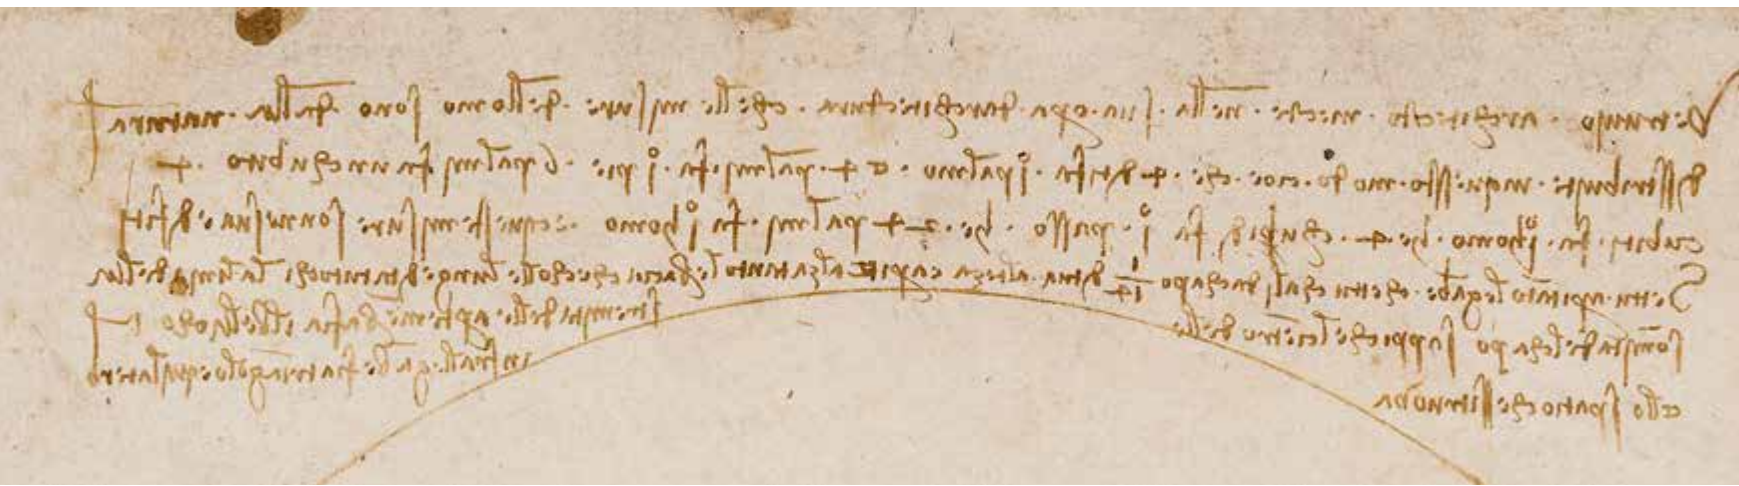 Vetruvio · architecto · mecte · nella · sua · opa · darchitectura · chelle misure · dellomo sono dalla · natura
disstribuite · inquessto · modo · cioe · che · 4 · diti fa · 1 palmo · et 4 · palmi · fa · 1 pie · 6 palmi fa unchubito · 4
cubiti · fa · 1 homo · he · 4 · chubiti fa 1 · passo · he · 24 palmi · fa 1 homo · ecqueste misure son nesua edifiti
Settu · apri tāto legābe · chettu chali dachapo 1/14 di tua · alteza e apri e alza tanto le bracia che cholle lunge dita tu tochi la linia della
sommita del chapo sappi che l cientro delle stremita delle aperte mēbra fia il bellicho
ello spatio chessi truova infralle gābe fia triāgolo equilatero